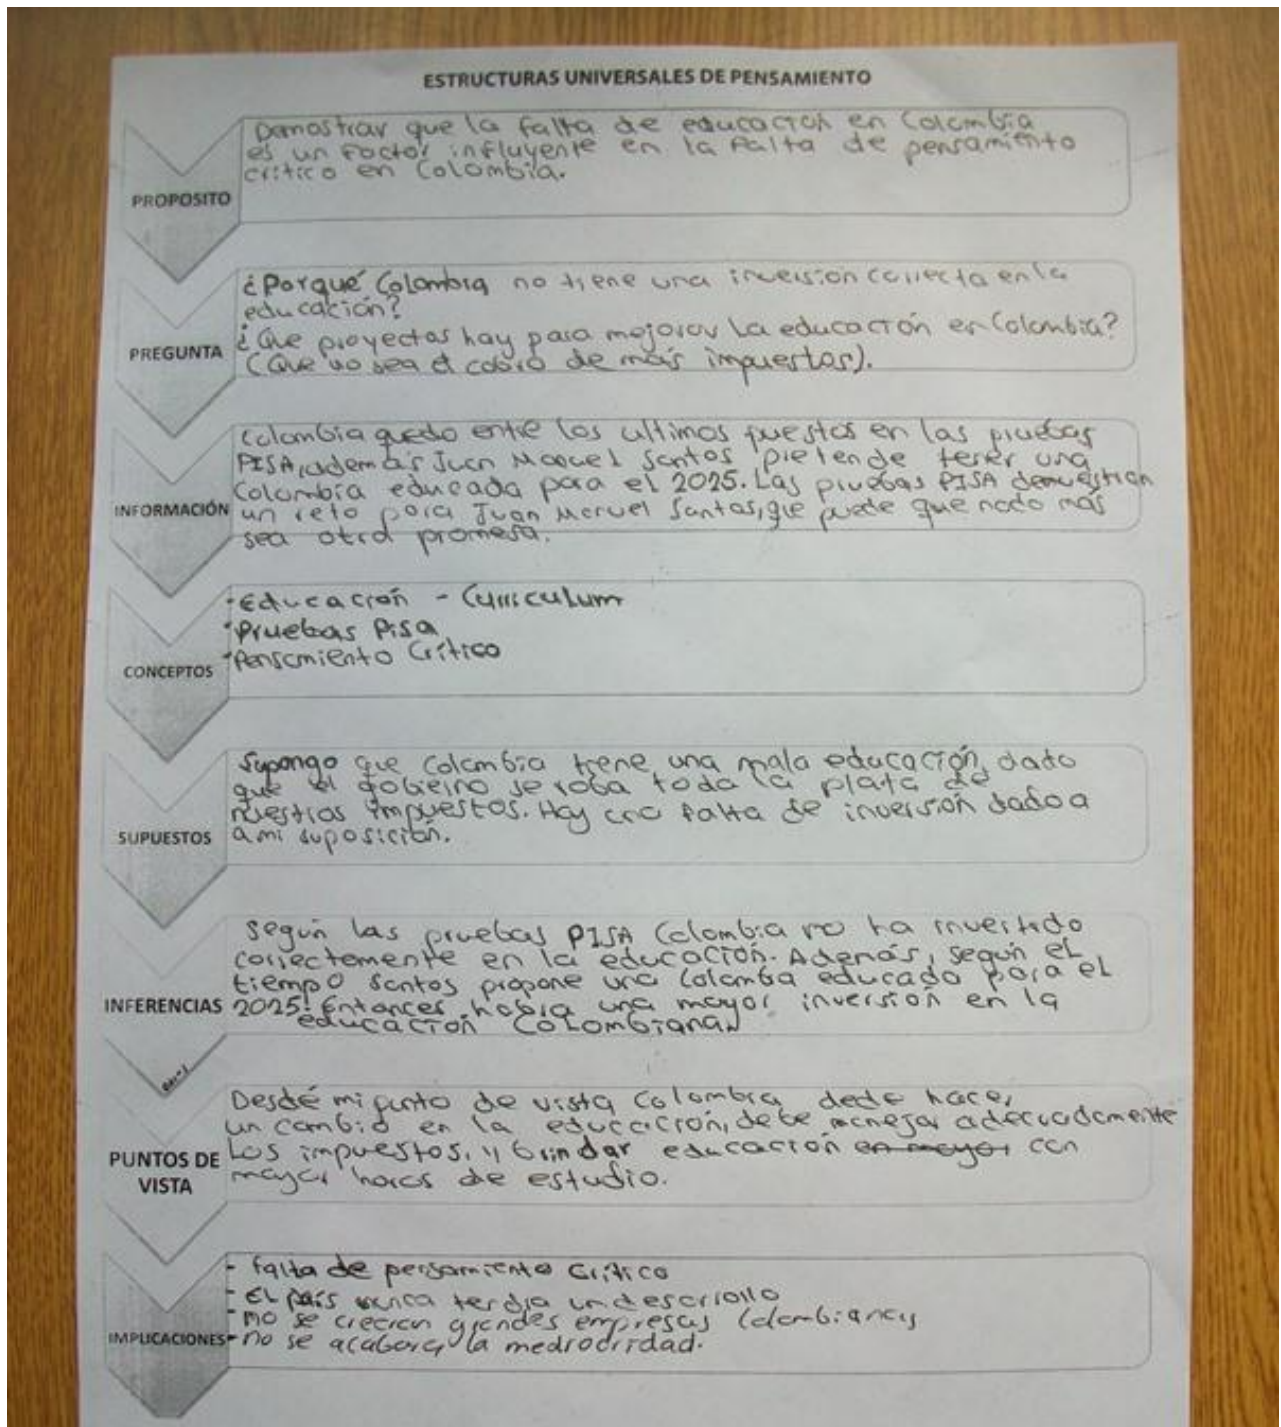 ESTRUCTURAS UNIVERSALES DE PENSAMIENTO
PROPOSITO
Demostrar que la falta de educación en Colombia
es un factor influyente en la falta de pensamiento
crítico en Colombia.
PREGUNTA
¿Porqué Colombia no tiene una inversión correcta en la
educación?
¿Que proyectos hay para mejorar la educación en Colombia?
(Que no sea el cobro de más impuestos).
INFORMACIÓN
Colombia quedo entre los ultimos puestos en las pruebas
PISA, además Juan Manuel Santos pretende tener una
Colombia educada para el 2025. Las pruebas PISA demuestran
un reto para Juan Manuel Santos, que puede que nada más
sea otra promesa.
CONCEPTOS
·Educación - Curriculum
·Pruebas Pisa
·Pensamiento Crítico
SUPUESTOS
Supongo que Colombia tiene una mala educación, dado
que el gobierno se roba toda la plata de
nuestros impuestos. Hay una falta de inversión dado a
a mi suposición.
INFERENCIAS
Según las pruebas PISA Colombia no ha invertido
correctamente en la educación. Además, según el
tiempo Santos propone una Colombia educada para el
2025. Entonces habra una mayor inversión en la
educación Colombiana
PUNTOS DE
VISTA
Desde mi punto de vista Colombia debe hacer
un cambio en la educación, debe manejar adecuadamente
los impuestos, y brindar educación en mayor con
mayor horas de estudio.
IMPLICACIONES
- Falta de pensamiento crítico
- El país nunca tendra un desarrollo
- no se crearan grandes empresas Colombianas
- no se acabara la mediocridad.